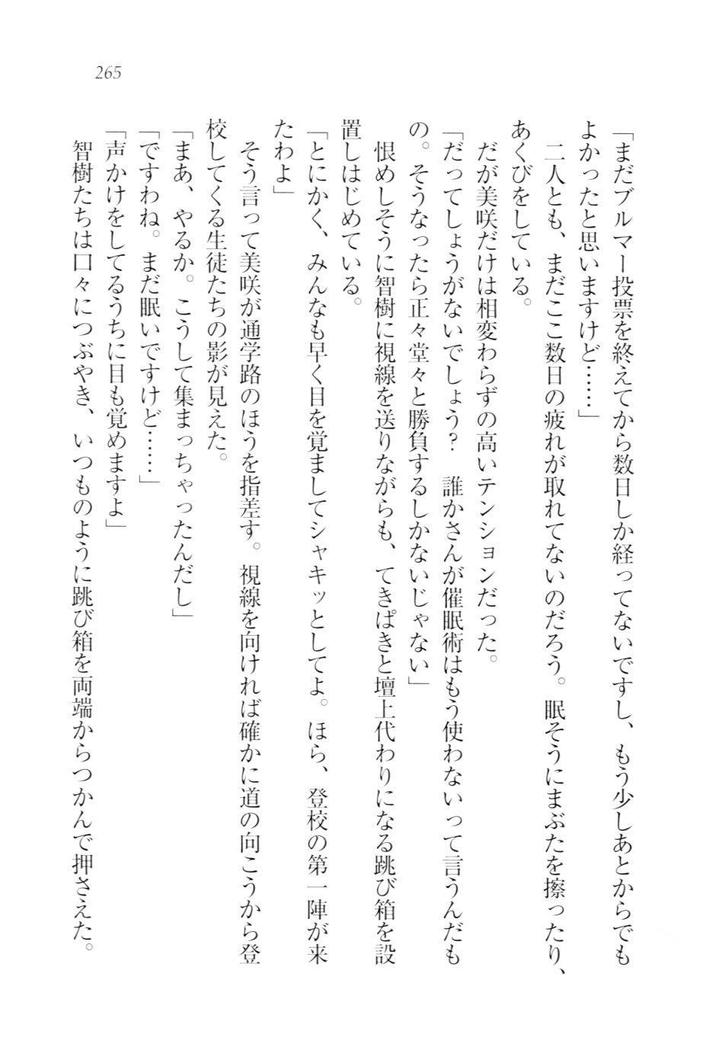 265
「まだブルマー投票を終えてから数日しか経ってないですし、もう少しあとからでも
よかったと思いますけど……」
二人とも、まだここ数日の疲れが取れてないのだろう。眠そうにまぶたを擦ったり、
あくびをしている。
だが美咲だけは相変わらずの高いテンションだった。
「だってしょうがないでしょう？　誰かさんが催眠術はもう使わないって言うんだも
の。そうなったら正々堂々と勝負するしかないじゃない」
恨めしそうに智樹に視線を送りながらも、てきぱきと壇上代わりになる跳び箱を設
置しはじめている。
「とにかく、みんなも早く目を覚ましてシャキッとしてよ。ほら、登校の第一陣が来
たわよ」
そう言って美咲が通学路のほうを指差す。視線を向ければ確かに道の向こうから登
校してくる生徒たちの影が見えた。
「まあ、やるか。こうして集まっちゃったんだし」
「ですわね。まだ眠いですけど……」
「声かけをしてるうちに目も覚めますよ」
智樹たちは口々につぶやき、いつものように跳び箱を両端からつかんで押さえた。